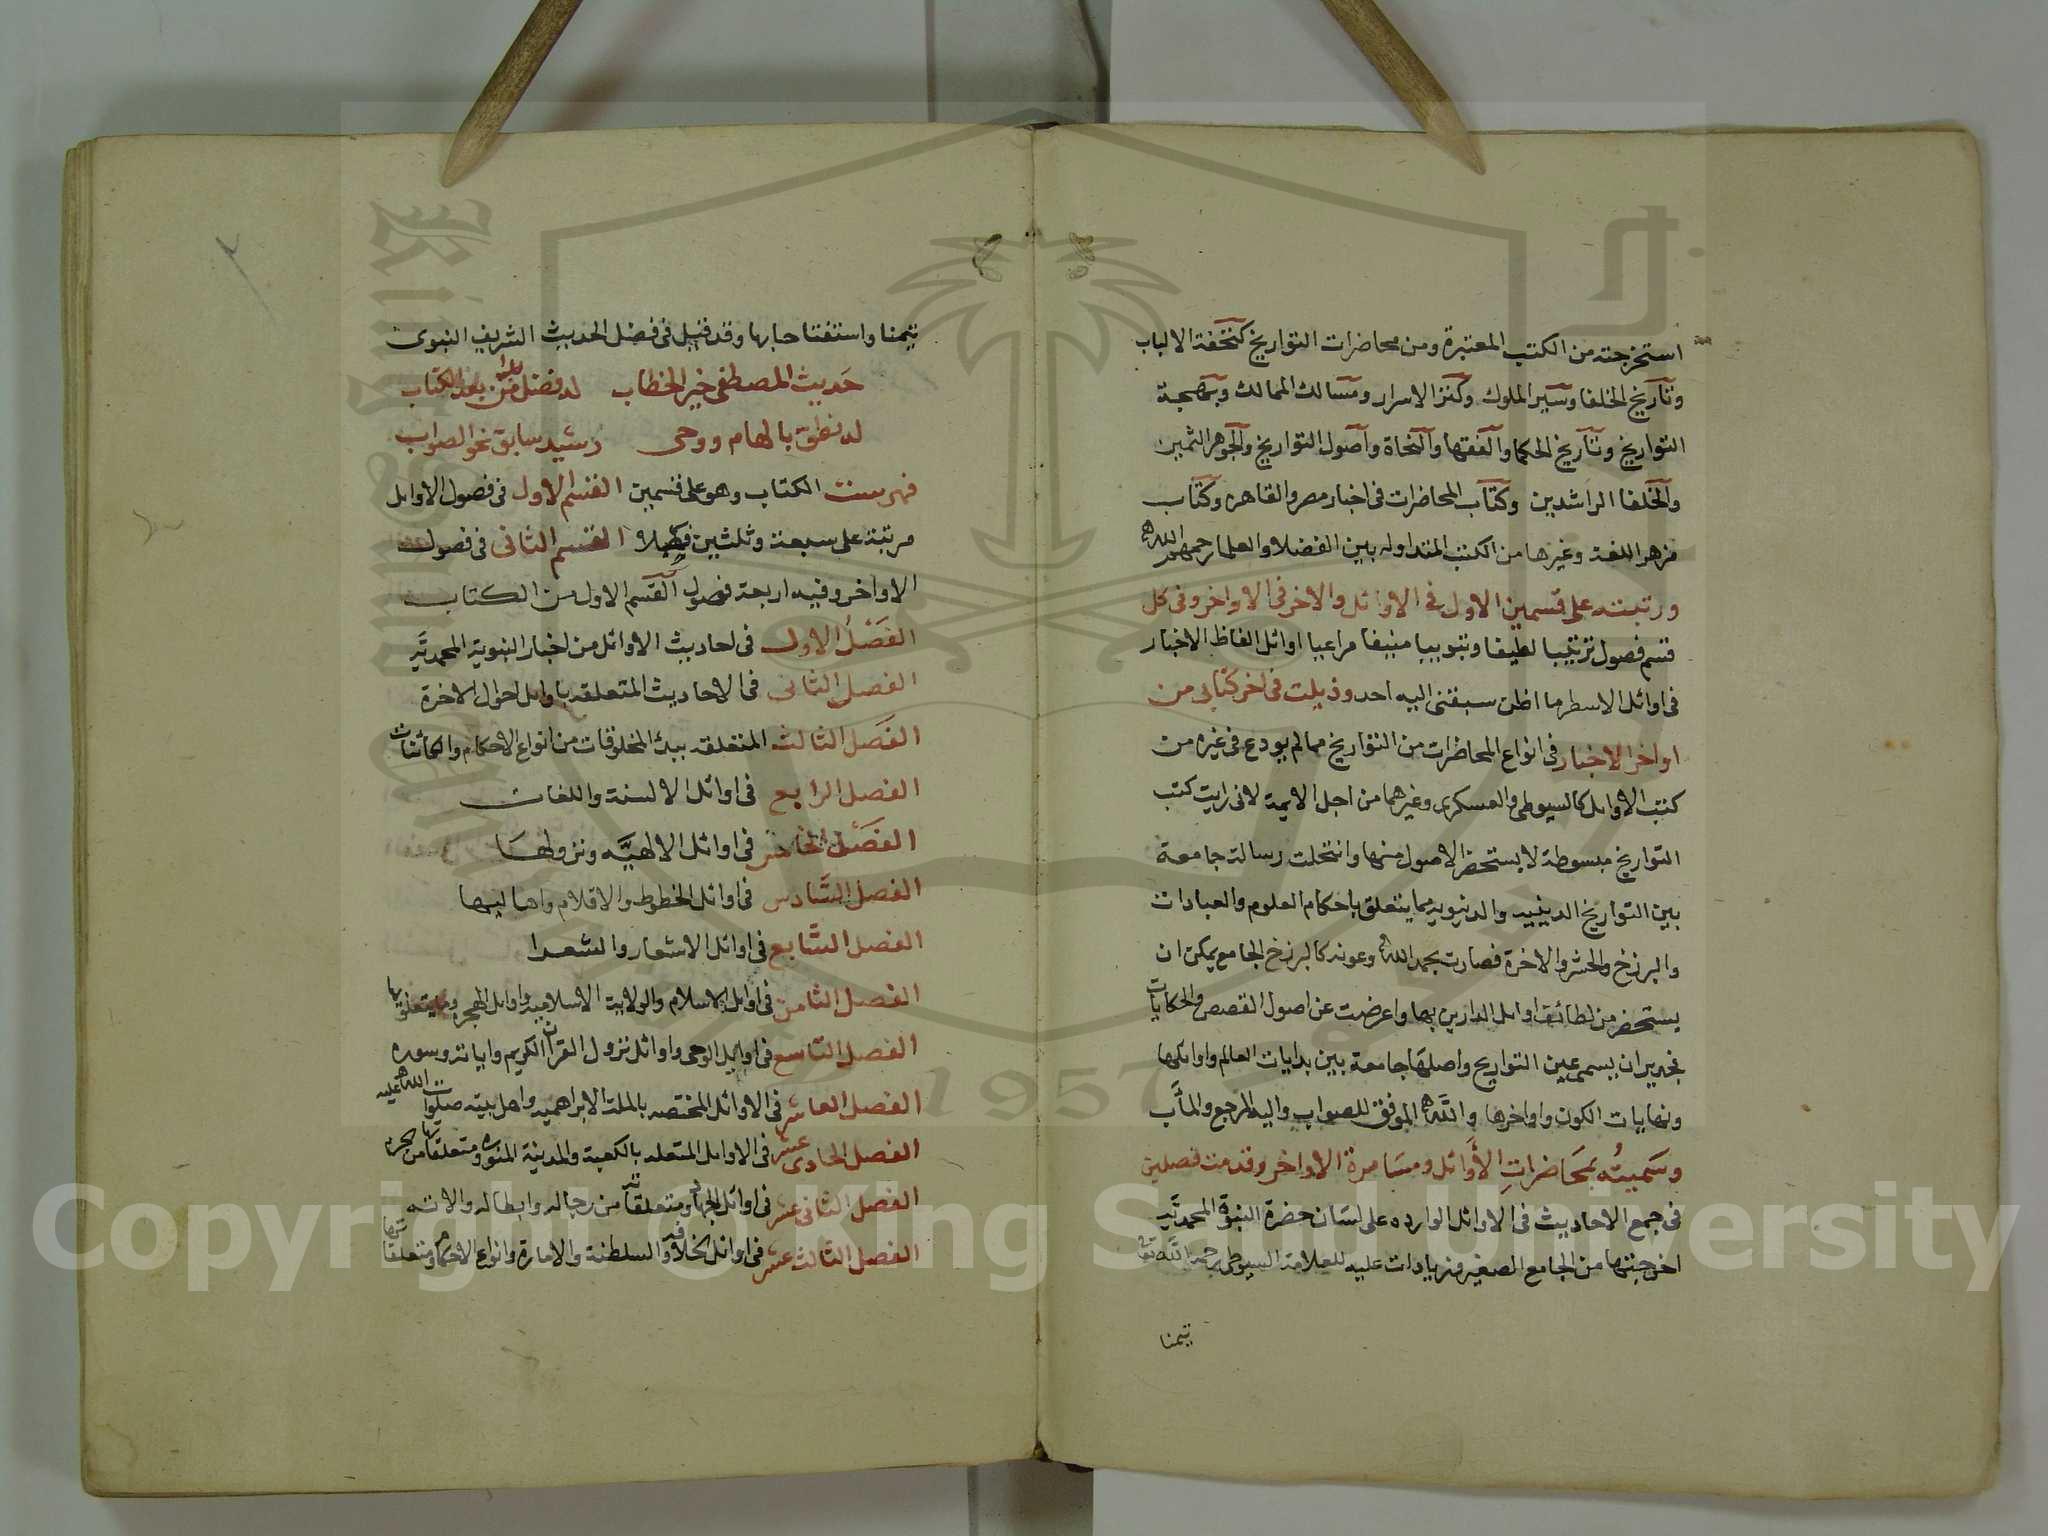 استخرجته من الكتب المعتبرة ومن محاضرات التواريخ كتحفة الالباب
وتاريخ الخلفا وسير الملوك وكنز الاسرار ومسالك الممالك وبهجة
التواريخ وتاريخ الحكما والفقها والنحاة واصول التواريخ والجوهر الثمين
والخلفا الراشدين وكتاب المحاضرات فى اخبار مصر والقاهره وكتاب
مزهر اللغة وغيرها من الكتب المتداوله بين الفضلا والعلما رحمهم الله
ورتبته على قسمين الاول فى الاوائل والاخر فى الاواخر وفى كل
قسم فصول ترتيبا لطيفا وتبويبا منيفا مراعيا اوائل الفاظ الاخبار
فى اوائل الاسطر ما اظن سبقنى اليه احد وذيلت فى اخر كتابى من
اواخر الاخبار فى انواع المحاضرات من التواريخ مما لم يودع فى غيره من
كتب الاوايل كالسيوطى والعسكرى وغيرهما من اجل الايمة لانى رايت كتب
التواريخ مبسوطة لا يستحضر الاصول منها وانتخلت رسالة جامعة
بين التواريخ الدينيه والدنيويه مما يتعلق باحكام العلوم والعبادات
والبرزخ والحشر والاخرة فصارت بحمد الله وعونه كالبرزخ الجامع يمكن ان
يستحضر من لطائف اوايل الدارين بها واعرضت عن اصول القصص والحكايات
فجدير ان يسمى عين التواريخ واصلها جامعة بين بدايات العالم واوائلها
ونهايات الكون واواخرها والله الموفق للصواب واليه المرجع والمآب
وسميته بمحاضرات الأوائل ومسامرة الاواخر وقدمت فصلين
فى جمع الاحاديث فى الاوائل الوارده على لسان حضرة النبوة المحمديه
اخرجتها من الجامع الصغير وزيادات عليه للعلامة السيوطى رحمه الله تعالى
تيمنا
تيمنا واستفتاحا بها وقد قيل فى فضل الحديث الشريف النبوى
حديث المصطفى خير الخطاب له فضل بعد الكتاب
له نطق بالهام ووحى رشيد سابق نحو الصواب
فهرست الكتاب وهو على قسمين القسم الاول فى فصول الاوايل
مرتبة على سبعة وثلثين فصلا القسم الثانى فى فصول
الاواخر وفيه اربعة فصول القسم الاول من الكتاب
الفصل الاول فى احاديث الاوائل من اخبار النبوية المحمديه
الفصل الثانى فى الاحاديث المتعلقه باوايل احوال الاخرة
الفصل الثالث المتعلقه ببدئ المخلوقات من انواع الاحكام والكائنات
الفصل الرابع فى اوائل الالسنة واللغات
الفصل الخامس فى اوائل الالهيه ونزولها
الفصل السادس فى اوائل الخطوط والاقلام واهاليها
الفصل السابع فى اوائل الاشعار والشعرا
الفصل الثامن فى اوايل الاسلام والولاية الاسلاميه واوايل الهجره وما يتعلق بها
الفصل التاسع فى اوايل الوحى واوائل نزول القران الكريم واياته وسوره
الفصل العاشر فى الاوائل المختصه بالملة الابراهميه واهل بيته صلوات الله عليه
الفصل الحادى عشر فى الاوايل المتعلقه بالكعبة والمدينة المنوره ومتعلقاتها من
الفصل الثانى عشر فى اوائل الجهاد ومتعلقاته من رجاله وابطاله والاته
الفصل الثالث عشر فى اوائل الخلافة والسلطنة والامارة وانواع الاحكام ومتعلقاتها
Copyright © King Saud University
1957